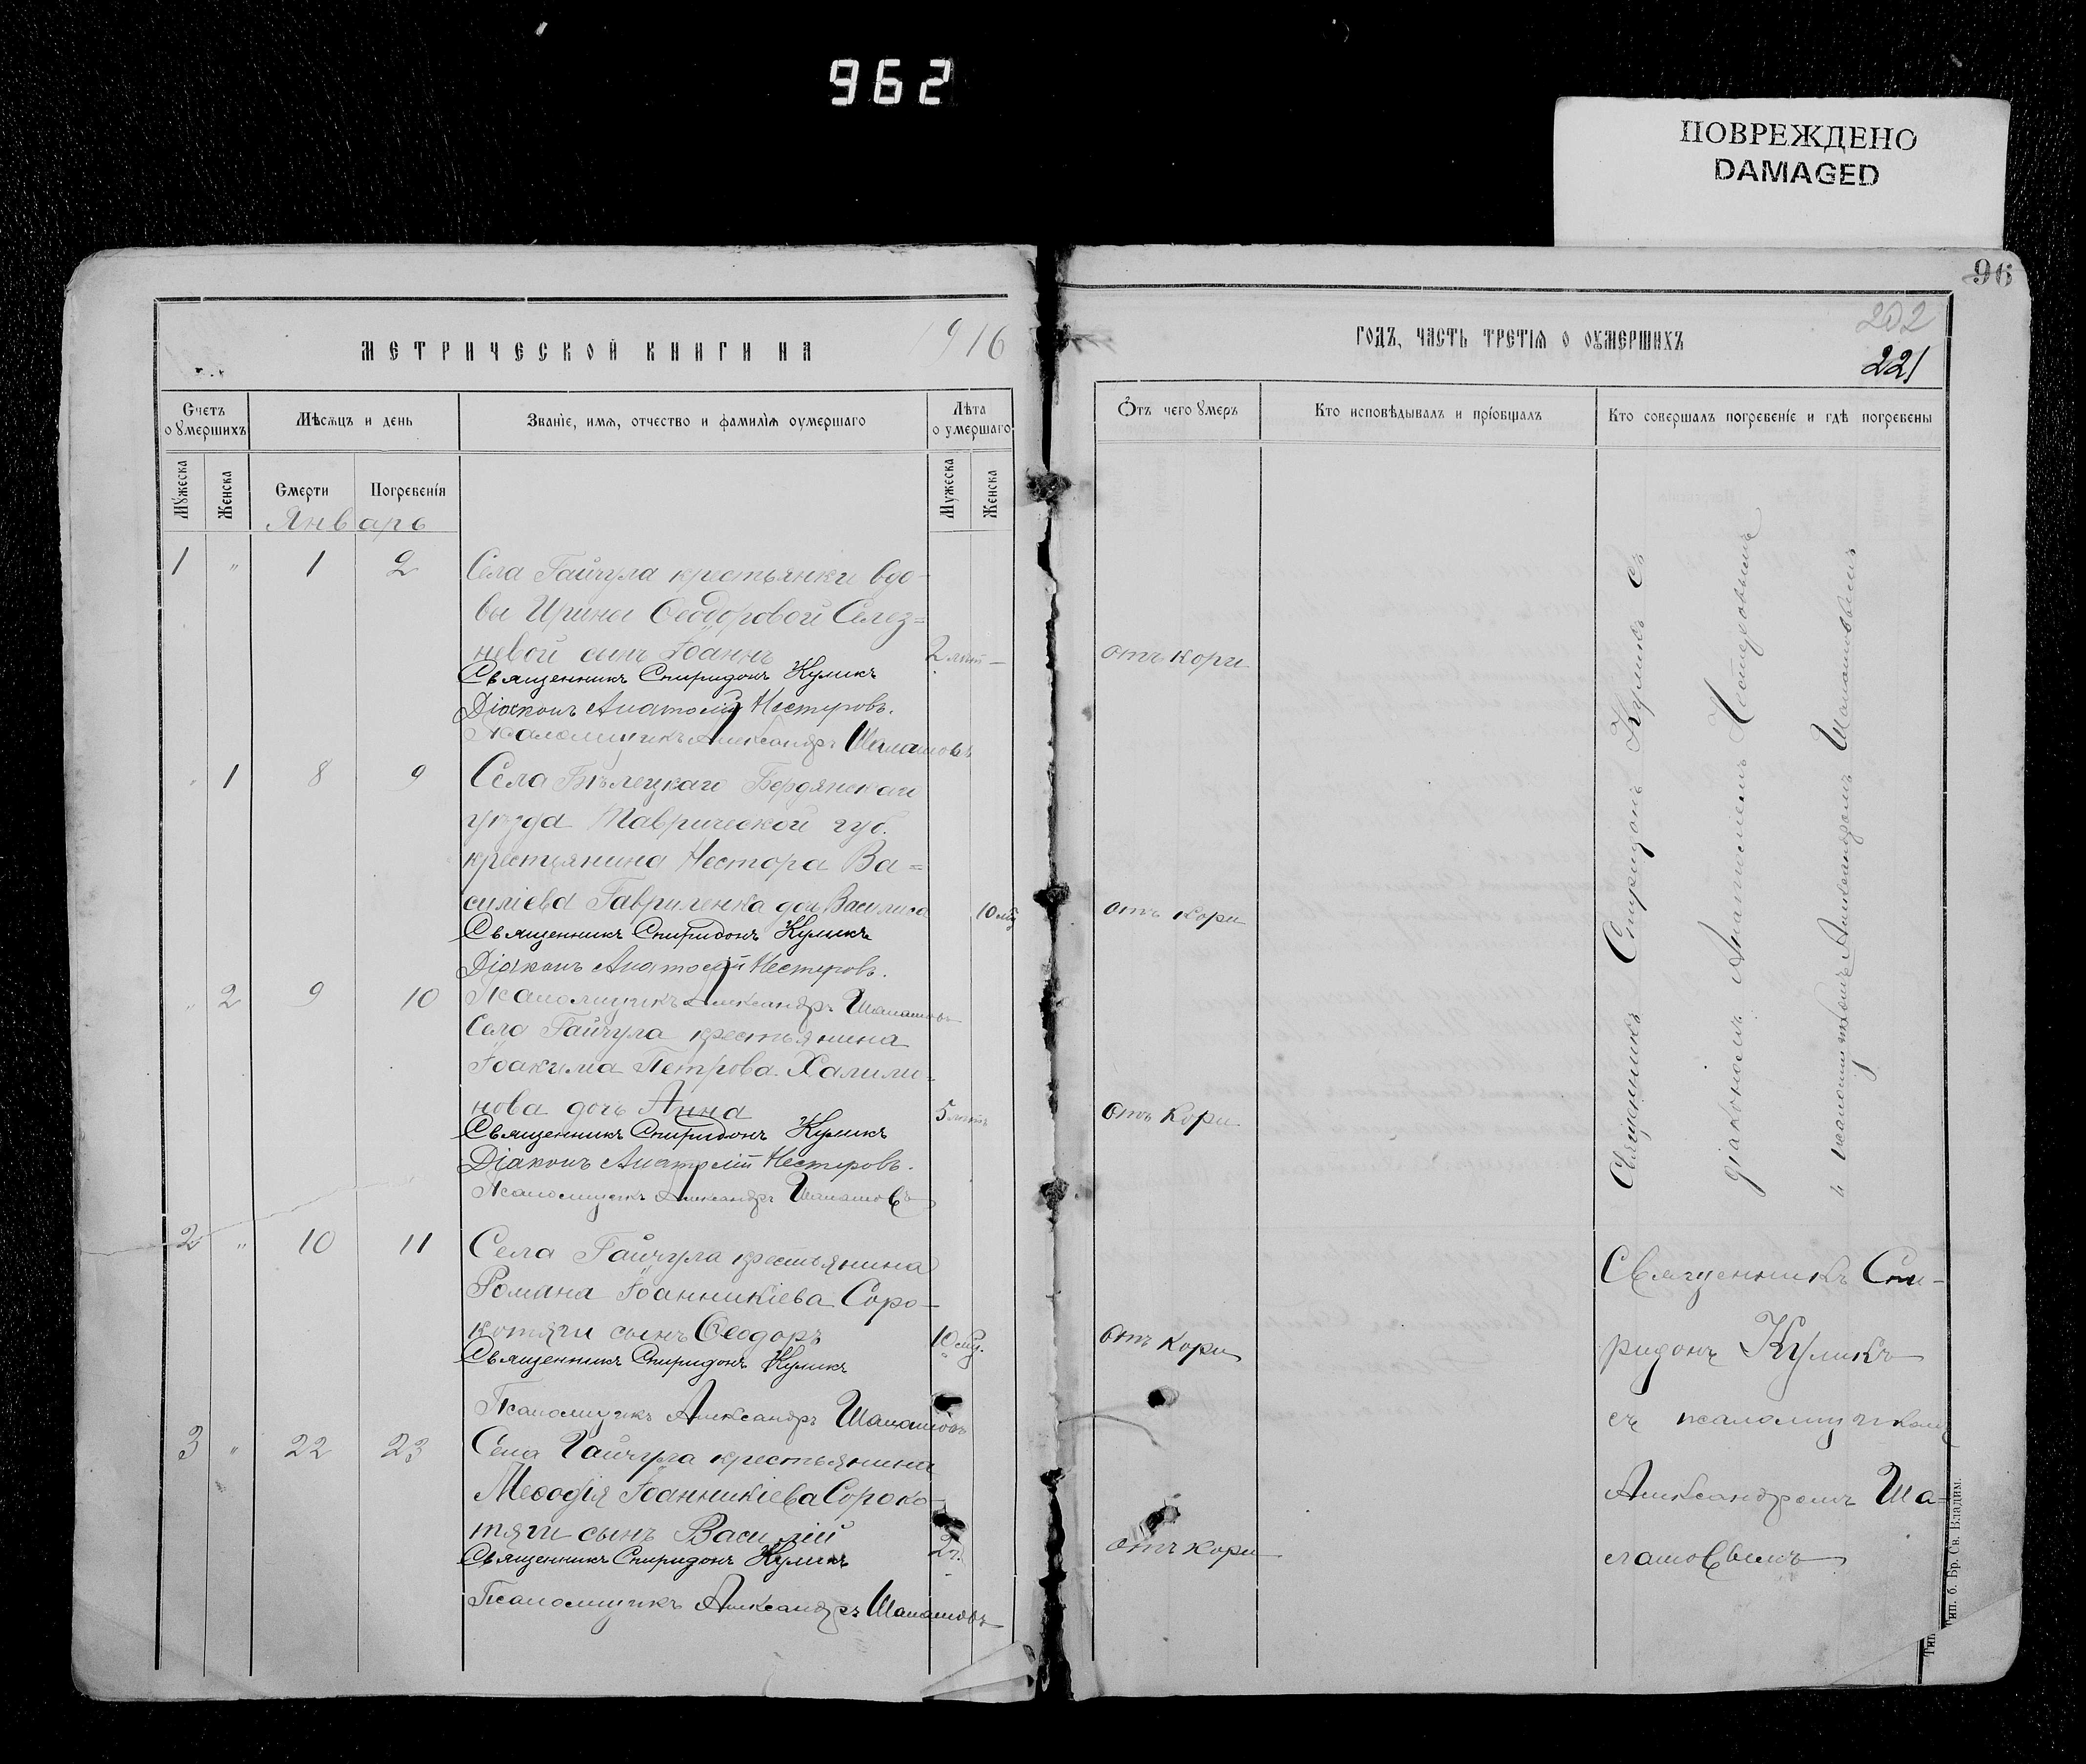 962
ПОВРЕЖДЕНО
DAMAGED
96
МЕТРИЧЕСКОЙ КНИГИ НА 1916
Счетъ
оумершихъ
Мѣсяцъ и день
Званіе, имя, отчество и фамилія оумершаго
Лѣта
оумершаго
Мужеска
Женска
Смерти
Погребенія
Мужеска
Женска
Январь
1 " 1 2 Села Гайчула крестьянки вдо-
вы Ирины Ѳеодоровой Селез=
невой сынъ Іоаннъ
2 лѣт
Священникъ Спиридонъ Куликъ
Діаконъ Анатолій Нестеровъ.
Псаломщикъ Александръ Шалашовъ
" 1 8 9 Села Бѣлецкаго Бердянскаго
уѣзда Таврической губ.
крестьянина Нестора Ва=
силіева Гавриленка дочь Василиса
10 мѣс
Священникъ Спиридонъ Куликъ
Діаконъ Анатолій Нестеровъ.
" 2 9 10 Псаломщикъ Александръ Шалашовъ
Села Гайчула крестьянина
Іоакима Петрова Халимо-
нова дочь Анна
5 лѣтъ
Священникъ Спиридонъ Куликъ
Діаконъ Анатолій Нестеровъ.
Псаломщикъ Александръ Шалашовъ
2 " 10 11 Села Гайчула крестьянина
Романа Іоанникіева Соро-
котяги сынъ Ѳеодоръ
10 мѣс.
Священникъ Спиридонъ Куликъ
Псаломщикъ Александръ Шалашовъ
3 " 22 23 Села Гайчула крестьянина
Меѳодія Іоанникіева Сороко-
тяги сынъ Василій
2 г.
Священникъ Спиридонъ Куликъ
Псаломщикъ Александръ Шалашовъ
202
ГОДЪ, ЧАСТЬ ТРЕТІЯ О ОУМЕРШИХЪ
221
Ѿтъ чего умеръ
Кто исповѣдывалъ и пріобщалъ
Кто совершалъ погребеніе и гдѣ погребены
отъ кори
отъ кори
отъ кори
отъ кори
отъ кори
Священникъ Спиридонъ Куликъ съ
діакономъ Анатоліемъ Нестеровымъ
и псаломщикомъ Александромъ Шалашовымъ
Священникъ Спи-
ридонъ Куликъ
съ псаломщикомъ
Александромъ Ша-
лашовымъ
Тип. б. Бр. Св. Владим.